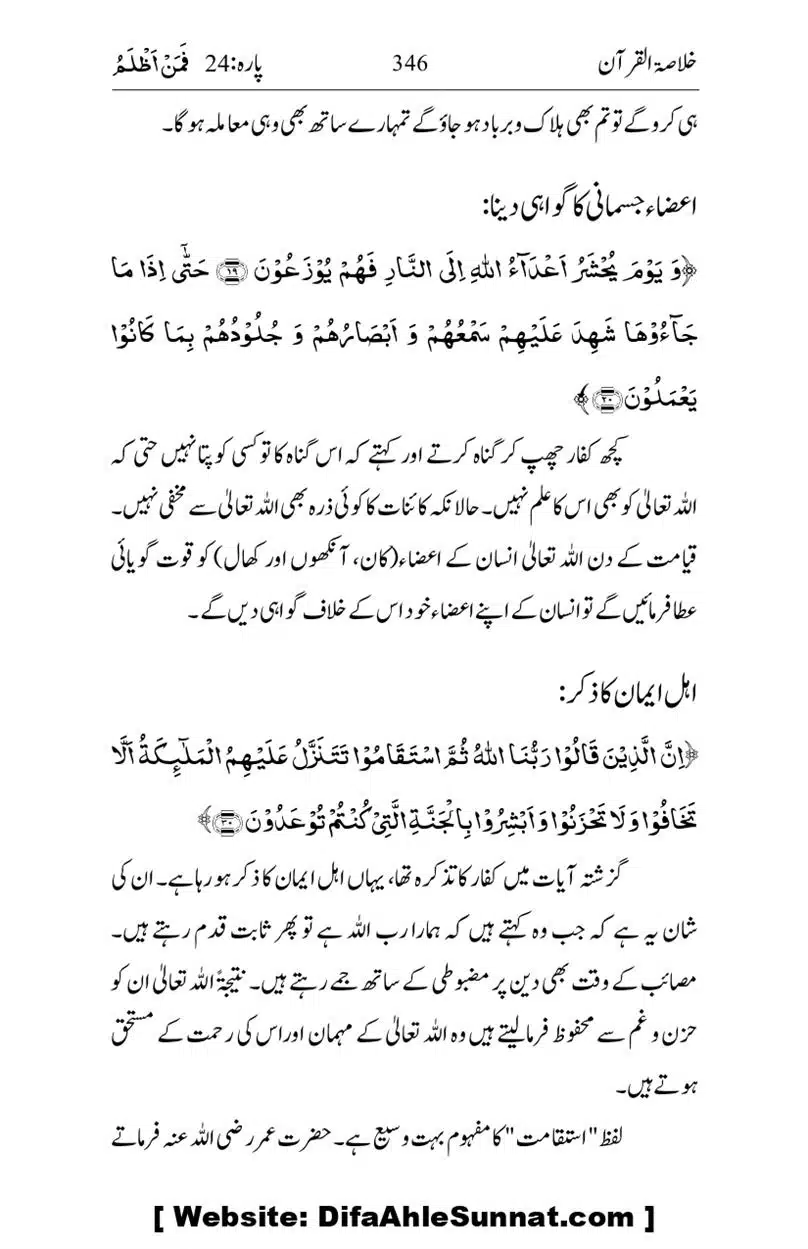 خلاصۃ القرآن 346 پارہ:24 فَمَنْ اَظْلَمُ
ہی کروگے تو تم بھی ہلاک و برباد ہو جاؤ گے تمہارے ساتھ بھی وہی معاملہ ہو گا۔
اعضاء جسمانی کا گواہی دینا:
﴿وَ یَوْمَ یُحْشَرُ اَعْدَآءُ اللہِ اِلَی النَّارِ فَہُمْ یُوْزَعُوْنَ ﴿۱۹﴾ حَتّٰۤی اِذَا مَا
جَآءُوْہَا شَہِدَ عَلَیْہِمْ سَمْعُہُمْ وَ اَبْصَارُہُمْ وَ جُلُوْدُہُمْ بِمَا کَانُوْا
یَعْمَلُوْنَ ﴿۲۰﴾﴾
کچھ کفار چھپ کر گناہ کرتے اور کہتے کہ اس گناہ کا تو کسی کو پتا نہیں حتی کہ
اللہ تعالیٰ کو بھی اس کا علم نہیں۔ حالانکہ کائنات کا کوئی ذرہ بھی اللہ تعالیٰ سے مخفی نہیں۔
قیامت کے دن اللہ تعالیٰ انسان کے اعضاء (کان، آنکھوں اور کھال) کو قوت گویائی
عطا فرمائیں گے تو انسان کے اپنے اعضاء خود اس کے خلاف گواہی دیں گے۔
اہل ایمان کا ذکر:
﴿اِنَّ الَّذِیْنَ قَالُوْا رَبُّنَا اللہُ ثُمَّ اسْتَقَامُوْا تَتَنَزَّلُ عَلَیْہِمُ الْمَلٰٓئِکَۃُ اَلَّا
تَخَافُوْا وَ لَا تَحْزَنُوْا وَ اَبْشِرُوْا بِالْجَنَّۃِ الَّتِیْ کُنْتُمْ تُوْعَدُوْنَ ﴿۳۰﴾﴾
گزشتہ آیات میں کفار کا تذکرہ تھا، یہاں اہل ایمان کا ذکر ہو رہا ہے۔ ان کی
شان یہ ہے کہ جب وہ کہتے ہیں کہ ہمارا رب اللہ ہے تو پھر ثابت قدم رہتے ہیں۔
مصائب کے وقت بھی دین پر مضبوطی کے ساتھ جمے رہتے ہیں۔ نتیجۃً اللہ تعالیٰ ان کو
حزن و غم سے محفوظ فرمالیتے ہیں وہ اللہ تعالیٰ کے مہمان اوراس کی رحمت کے مستحق
ہوتے ہیں۔
لفظ "استقامت" کا مفہوم بہت وسیع ہے۔ حضرت عمر رضی اللہ عنہ فرماتے
[ Website: DifaAhleSunnat.com ]